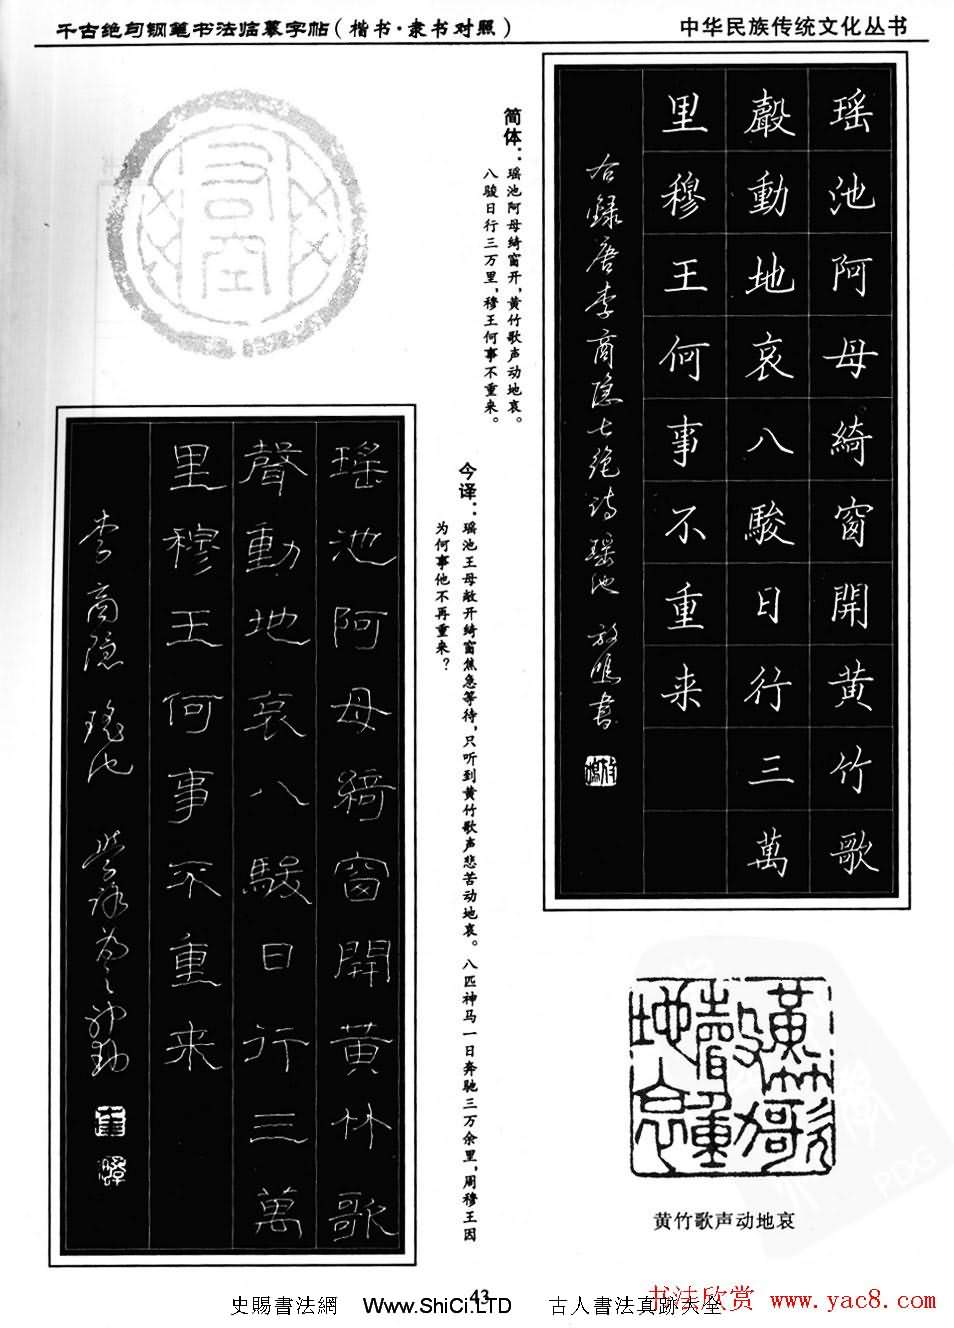 千古绝句钢笔书法临摹字帖（楷书·隶书对照）
中华民族传统文化丛书
瑶池阿母綺窗開黄竹歌
聲動地哀八駿日行三萬
里穆王何事不重来
右錄唐李商隐七绝诗瑶池
简体：瑶池阿母绮窗开，黄竹歌声动地哀。
八骏日行三万里，穆王何事不重来。
今译：瑶池王母敞开绮窗焦急等待，只听到黄竹歌声悲苦动地哀。八匹神马一日奔驰三万余里，周穆王因
为何事他不再重来？
瑶池阿母綺窗開黄竹歌
聲動地哀八駿日行三萬
里穆王何事不重来
李商隐 瑶池
黄竹歌聲動地哀
黄竹歌声动地哀
43
史賜書法網 Www.ShiCi.LTD 古人書法真跡大全
书法欣赏 www.yac8.com
PDG